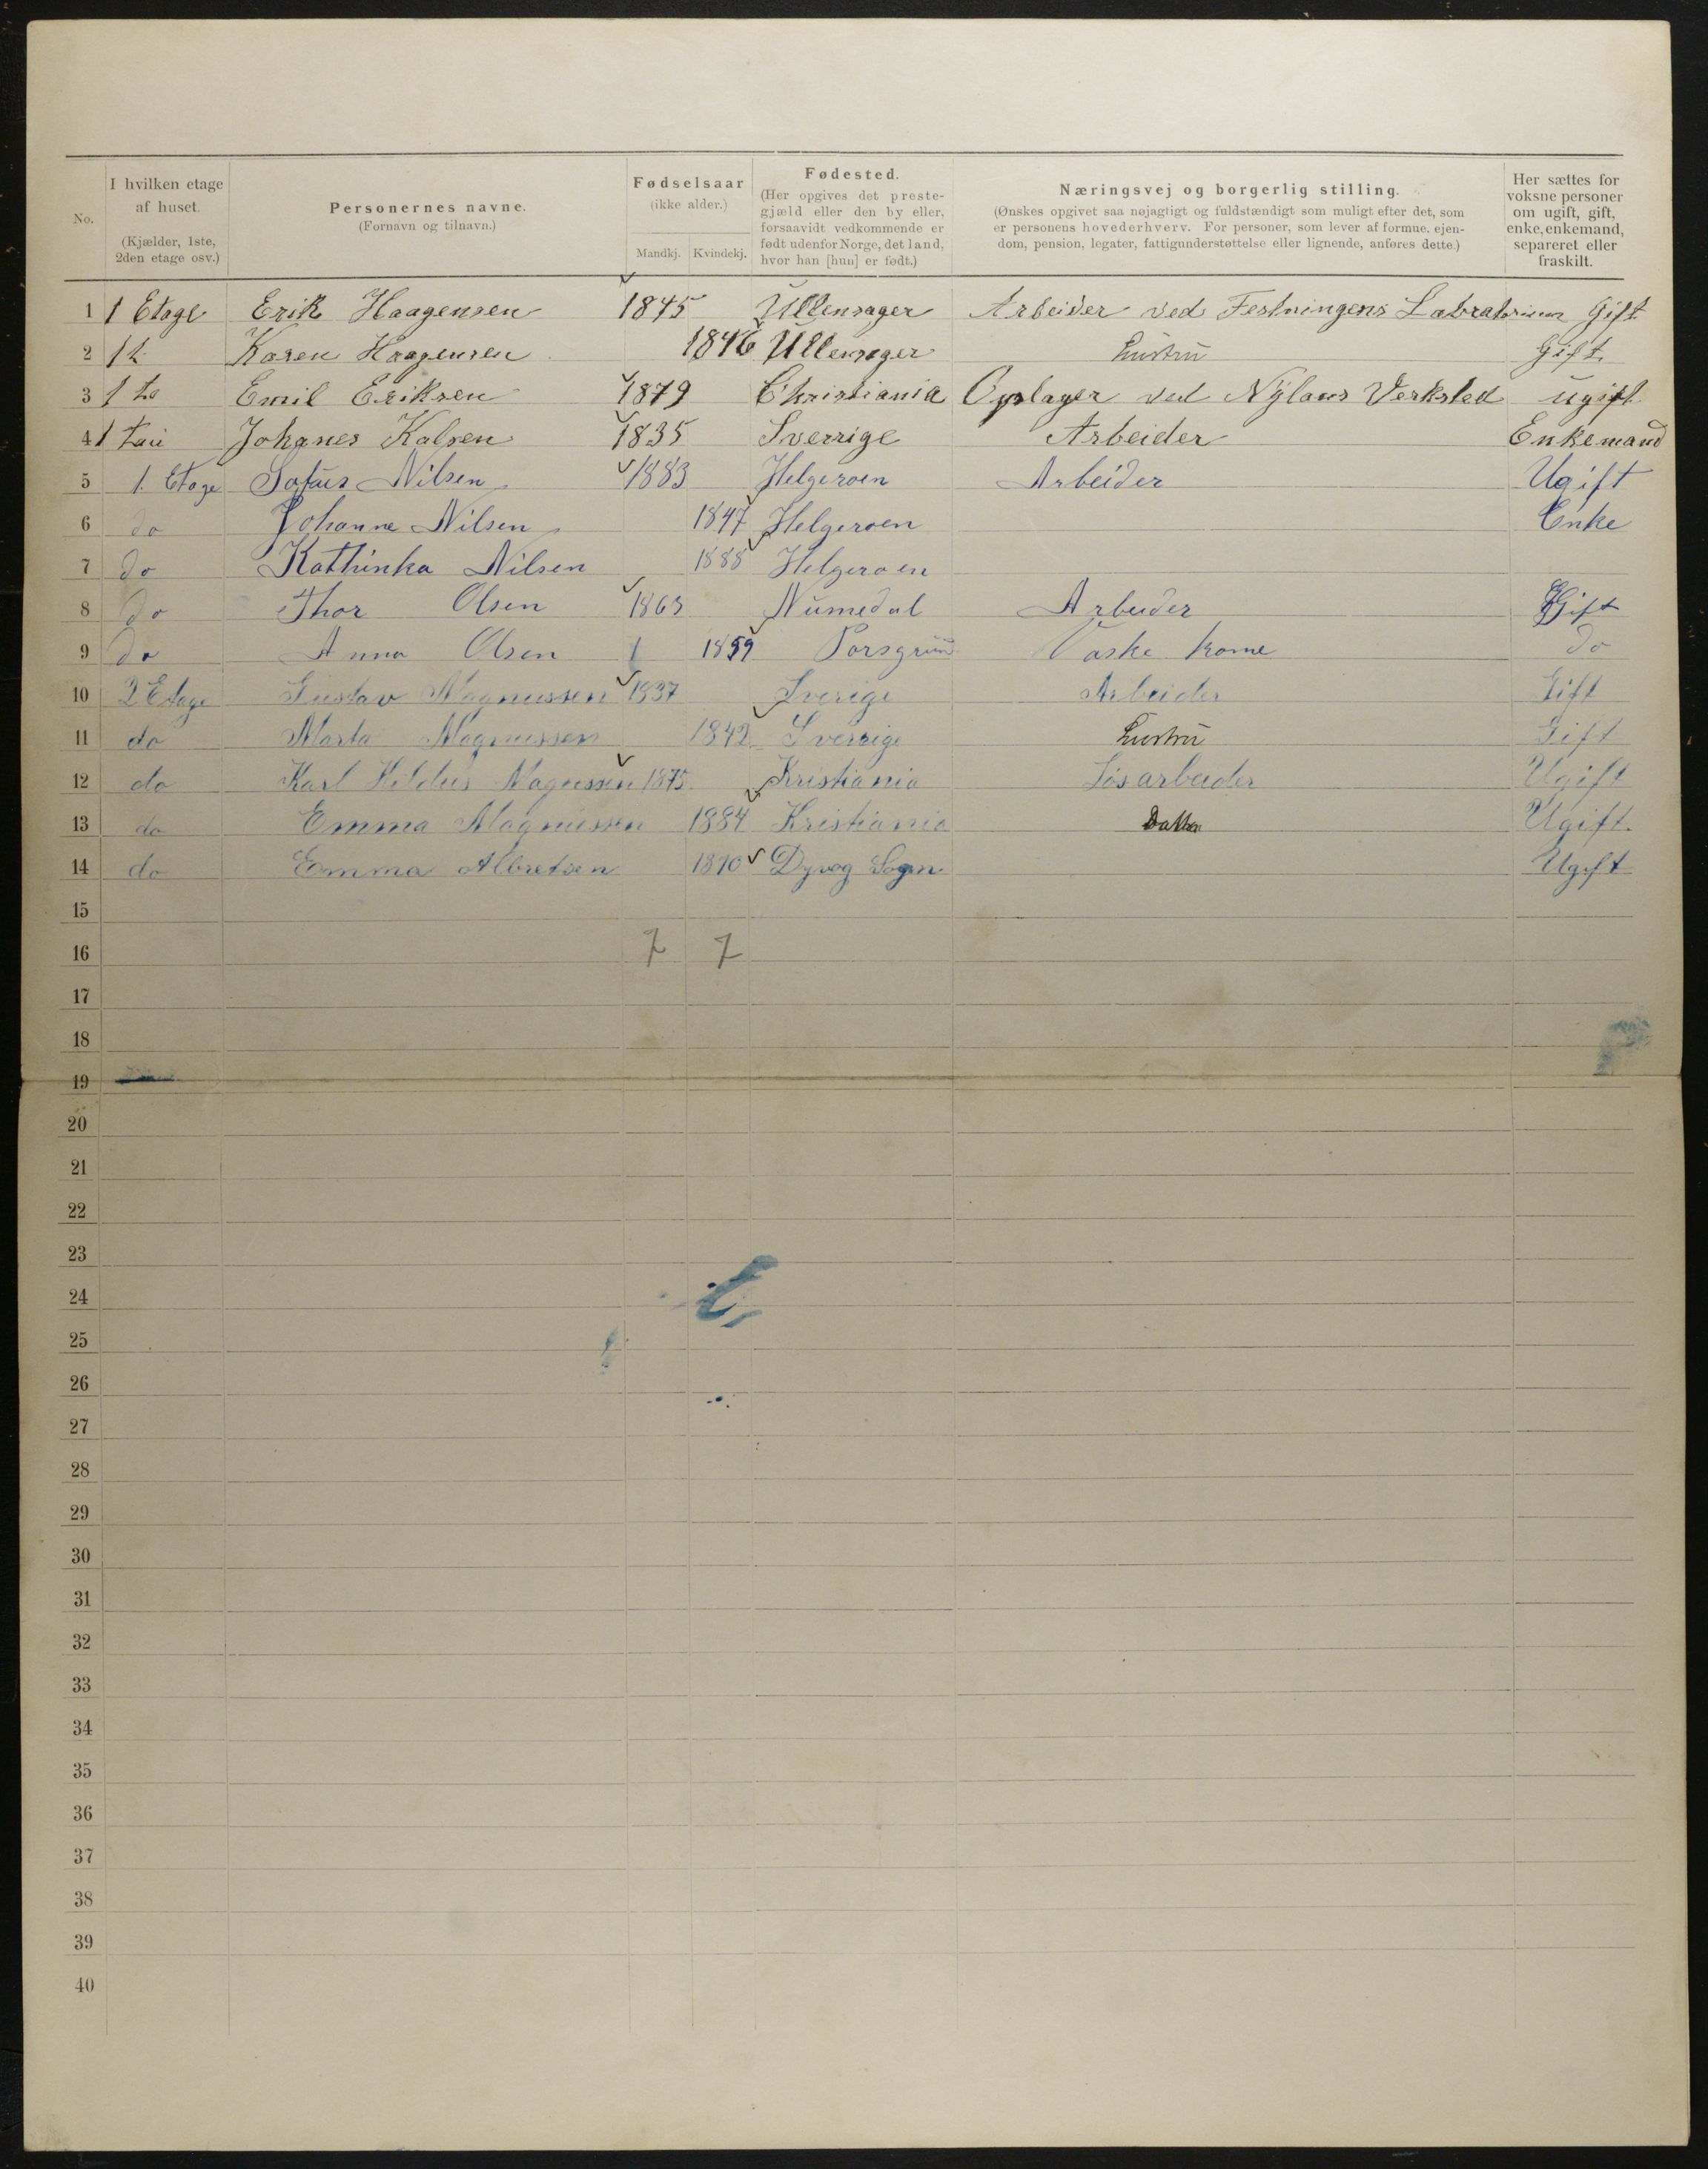 No.
I hvilken etage af huset. (Kjælder, 1ste, 2den etage osv.)
Personernes navne. (Fornavn og tilnavn.)
Fødselsaar (ikke alder.) Mandkj. Kvindekj.
Fødested. (Her opgives det prestegjæld eller den by eller, forsaavidt vedkommende er født udenfor Norge, det land, hvor han [hun] er født.)
Næringsvej og borgerlig stilling. (Ønskes opgivet saa nøjagtigt og fuldstændigt som muligt efter det, som er personens hovederhverv. For personer, som lever af formue, ejendom, pension, legater, fattigunderstøttelse eller lignende, anføres dette.)
Her sættes for voksne personer om ugift, gift, enke, enkemand, separeret eller fraskilt.
1 1 Etage Erik Haagensen 1845 Ullensager Arbeider ved Festningens Labratorium Gift
2 Karen Haagensen 1846 Ullensager Hustru Gift
3 1 Emil Eriksen 1879 Christiania Oplager ved Nylans Verksted ugift
4 1 Johanes Kalsen 1835 Sverrige Arbeider Enkemand
5 1. Etage Sofus Nilsen 1883 Helgeroen Arbeider Ugift
6 do Johanne Nilsen 1847 Helgeroen Enke
7 do Kathinka Nilsen 1888 Helgeroen
8 do Thor Olsen 1863 Numedal Arbeider Gift
9 do Anna Olsen 1859 Porsgrund Vaske kone do
10 2 Etage Gustav Magnussen 1837 Sverige Arbeider Gift
11 do Marta Magnussen 1842 Sverrige Hustru Gift
12 do Karl Magnussen 1875 Kristiania Løsarbeider Ugift
13 do Emma Magnussen 1884 Kristiania Datter Ugift
14 do Emma Albretsen 1870 Dyvog Sogn Ugift
15
16 7 7
17
18
19
20
21
22
23
24
25
26
27
28
29
30
31
32
33
34
35
36
37
38
39
40